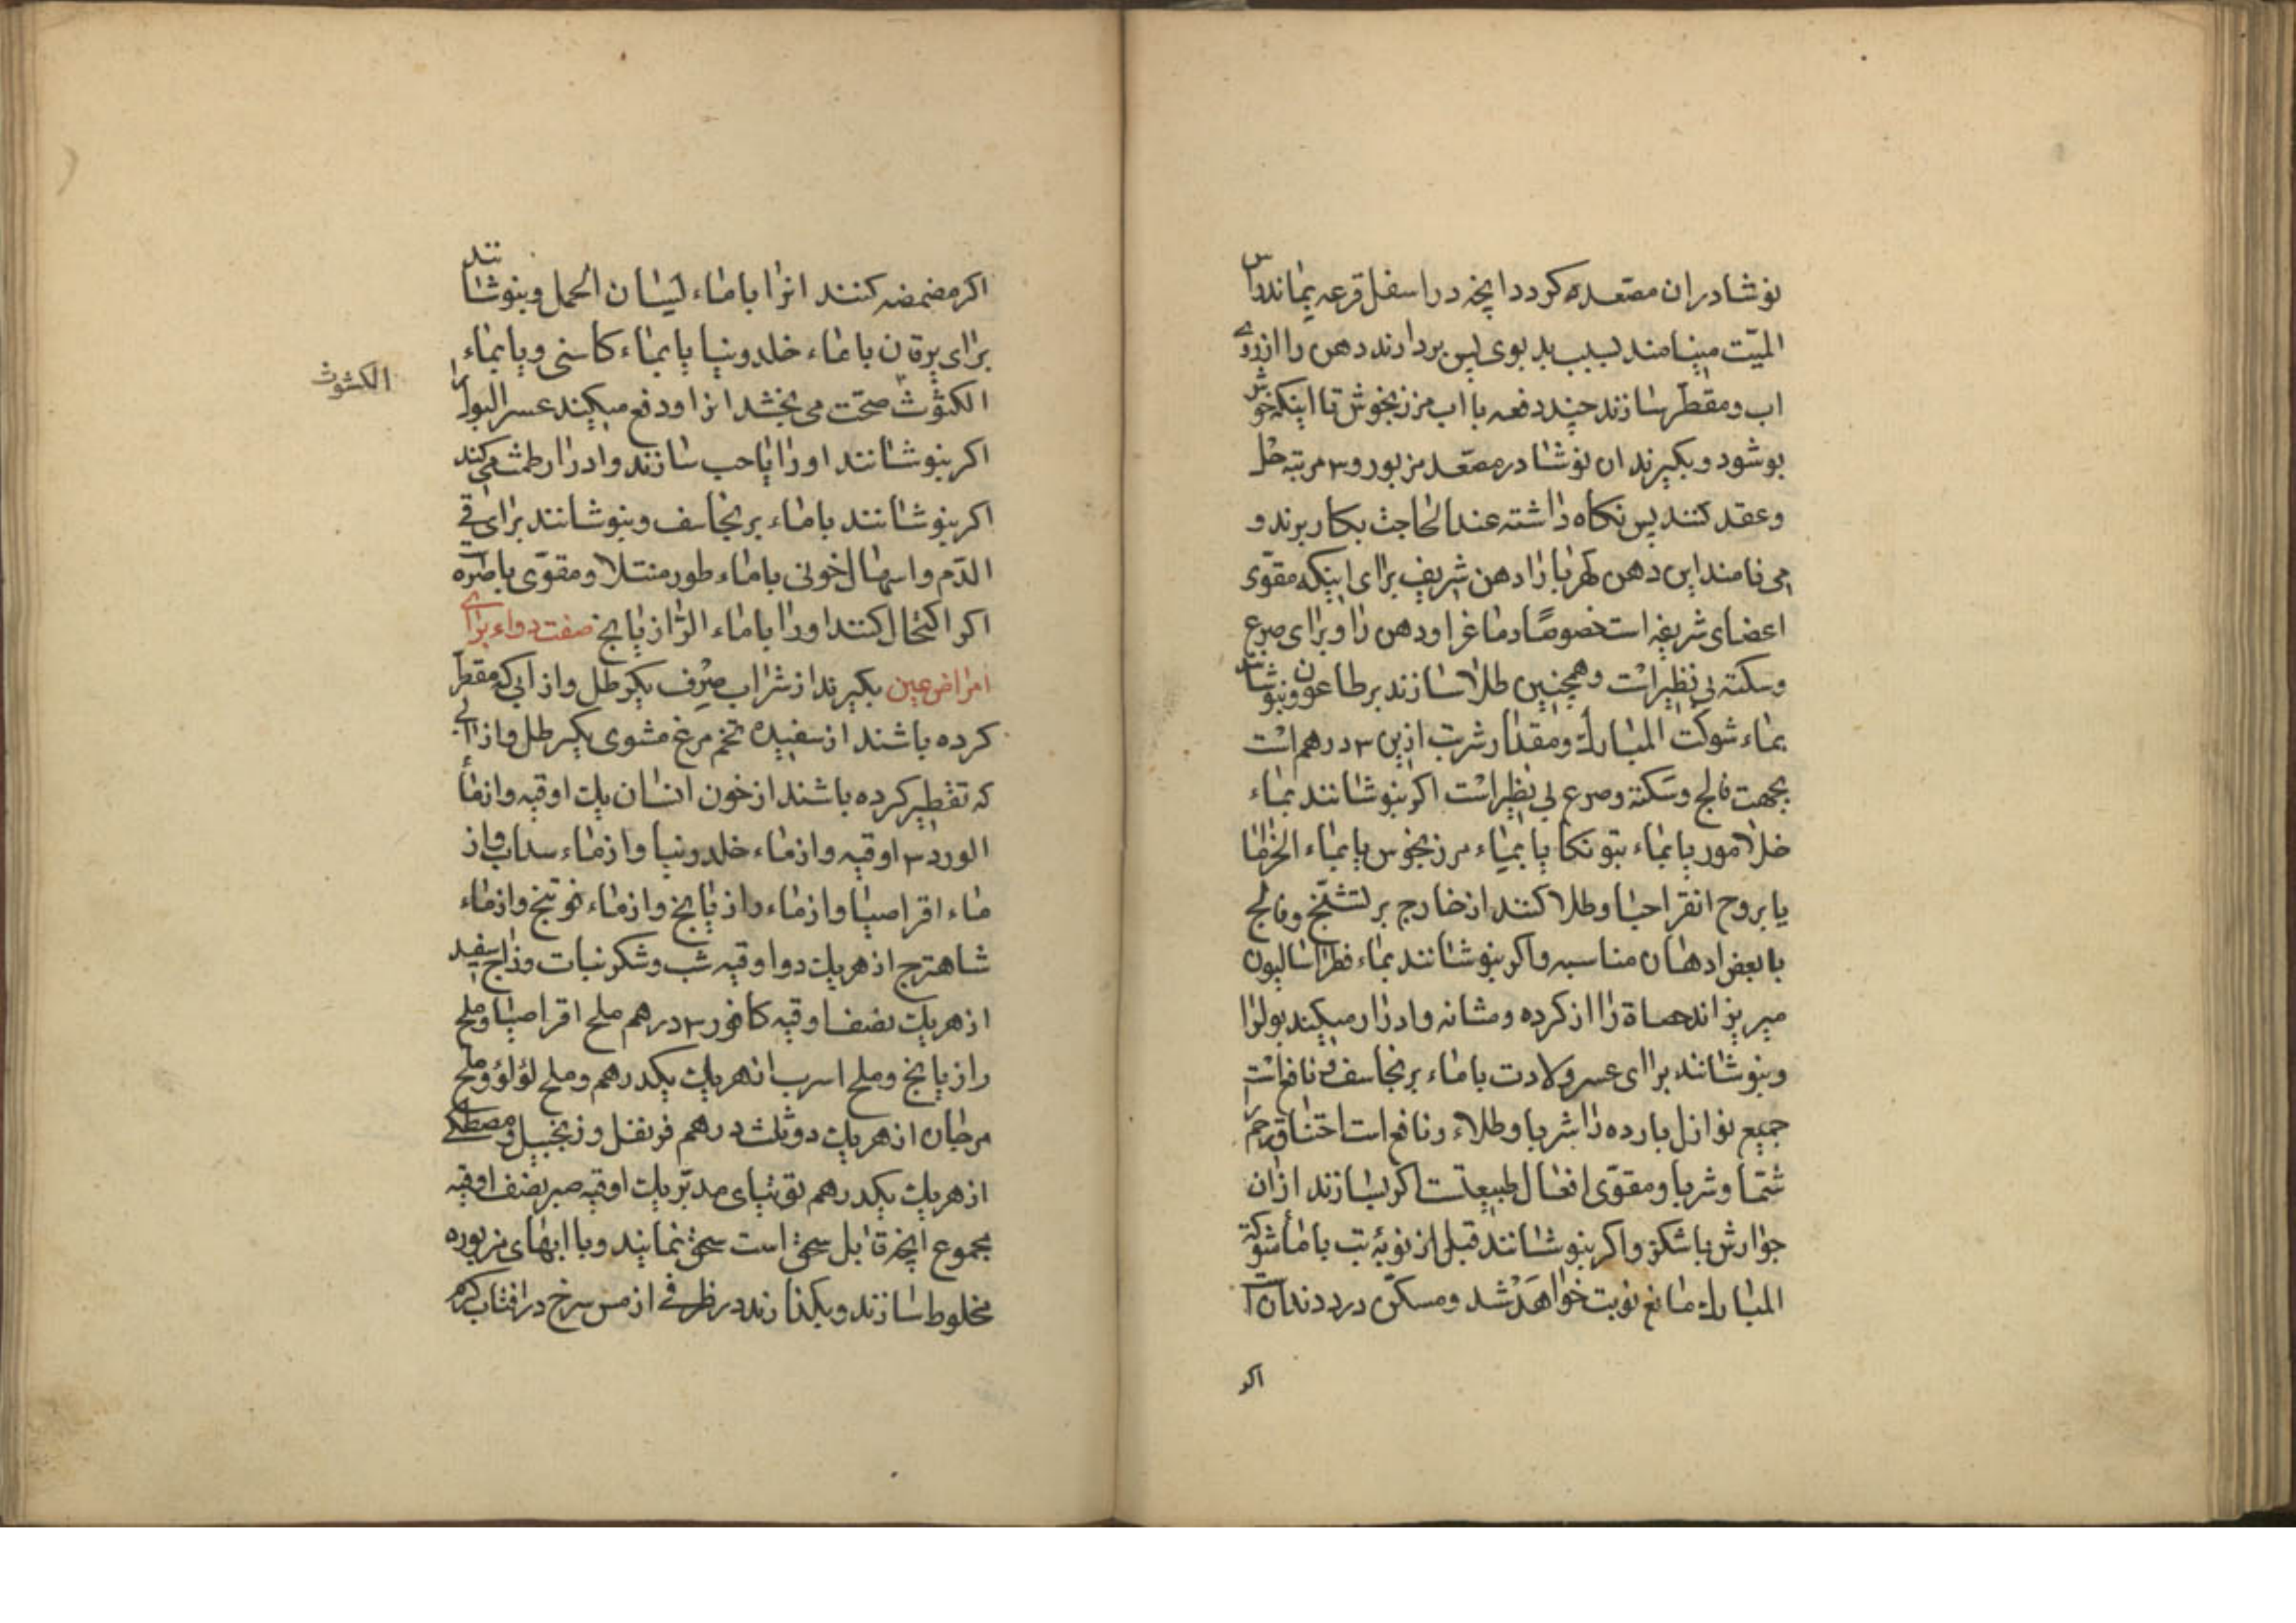 نوشادران مصعده کردد انچه در اسفل قرعه بماند راس
المیّت مینامند لسبب بدبوی پس بردارند دهن را از روی
اب و مقطّر سازند چند دفعه با اب مرزنجوش تا اینکه خوش
بو شود و بکیرند ان نوشادر مصعّد مزبور و ۳ مرتبه حل
و عقد کنند پس نکاه داشته عند الحاجت بکار برند و
می نامند این دهن کهربا را دهن شریف برای اینکه مقوّی
اعضای شریفه است خصوصًا دماغ را و دهن را و برای صرع
و سکته بی نظیر است و همچنین طلا سازند بر طاعون و بنوشانند
بماء شوکت المبارکة و مقدار شربت ازین ۳ درهم است
بجهت فالج و سکته و صرع بی نظیر است اکر بنوشانند بماء
خلامور یا بماء بتونکا یا بمیاء مرزنجوس یا بمیاء الخزاما
یا بروح انقراحیا و طلا کنند از خارج بر تشنّج و فالج
با بعض ادهان مناسبه و اکر بنوشانند بماء فطراسالیون
میریزاند حصاة را از کرده و مثانه و ادرار میکیند بول را
و بنوشانند برای عسر ولادت با ماء برنجاسف و نافع است
جمیع نوازل بارده را شربا و طلاء و نافع است اختناق رحم را
شمّا و شربا و مقوّی افعال طبیعتست اکر بسازند ازان
جوارش با شکر و اکر بنوشانند قبل از نوبۀ تب با ماء شوکة
المبارکة مانع نوبت خواهد شد و مسکّن درد دندان است
اکر
اکر مضمضه کنند انرا با ماء لیسان الحمل و بنوشانند
برای یرقان با ماء خلدونیا یا بماء کاسنی و یا بماء
الکثوث صحّت می بخشد انرا و دفع میکیند عسر البول را
الکشوث
اکر بنوشانند او را یا حب سازند و ادرار طمث می کند
اکر بنوشانند با ماء برنجاسف و بنوشانند برای قی
الدّم و اسهال خونی با ماء طورمنتلا و مقوّی باصره است
اکر اکتحال کنند او را با ماء الرازیانج صفت دواء برای
امراض عین بکیرند از شراب صرف یکرطل و از ابی که مقطّر
کرده باشند از سفیده تخم مرغ مشوی یکرطل و از ابی
که تقطیر کرده باشند از خون انسان یک اوقیه و از ماء
الورد ۳ اوقیه و از ماء خلدونیا و از ماء سداب و از
ماء اقراصیا و از ماء رازیانج و از ماء فوتنج و از ماء
شاهترج از هریک دو اوقیه شب و شکر نبات و زاج سفید
از هریک نصف اوقیه کافور ۳ درهم ملح اقراصیا و ملح
رازیانج و ملح اسرب از هریک یکدرهم و ملح لؤلؤ و ملح
مرجان از هریک دو ثلث درهم قرنفل و زنجبیل و مصطکی
از هریک یکدرهم توتیای مدبّر یک اوقیه صبر نصف اوقیه
مجموع انچه قابل سحق است سحق نمایند و با ابهای مزبوره
مخلوط سازند و بکذارند در ظرفی از مس سرخ در افتاب کرم